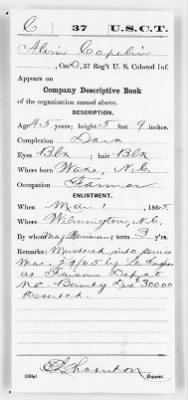 C 37 U.S.C.T.
Alvin Capelin
, Co. D, 37 Reg't U. S. Colored Inf.
Appears on
Company Descriptive Book
of the organization named above.
DESCRIPTION.
Age 45 years; height 5 feet 9 inches.
Complexion Dark
Eyes Blk ; hair Blk
Where born Wake, N.C.
Occupation Farmer
ENLISTMENT.
When Mar 1 , 1865.
Where Wilmington, N.C.
By whom Maj. term 3 y'rs.
Remarks: Mustered into service
Mar. 29/65 by Lt.
as
N.C. Bounty Due 300.00
Deserted.
Thornton
Copyist.